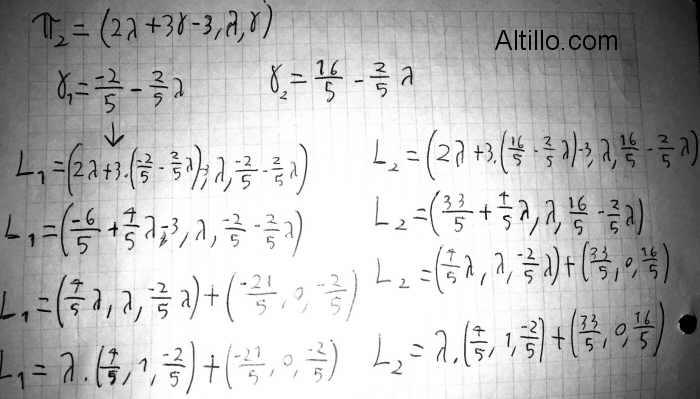 π₂ = (2λ+3γ-3, λ, γ)
Altillo.com
γ₁ = -2/5 - 2/5 λ
γ₂ = 16/5 - 2/5 λ
↓
L₁ = (2λ+3.(-2/5 - 2/5 λ)-3, λ, -2/5 - 2/5 λ)
L₂ = (2λ+3.(16/5 - 2/5 λ)-3, λ, 16/5 - 2/5 λ)
L₁ = (-6/5 + 4/5 λ -3, λ, -2/5 - 2/5 λ)
L₂ = (33/5 + 4/5 λ, λ, 16/5 - 2/5 λ)
L₁ = (4/5 λ, λ, -2/5 λ) + (-21/5, 0, -2/5)
L₂ = (4/5 λ, λ, -2/5 λ) + (33/5, 0, 16/5)
L₁ = λ.(4/5, 1, -2/5) + (-21/5, 0, -2/5)
L₂ = λ.(4/5, 1, -2/5) + (33/5, 0, 16/5)